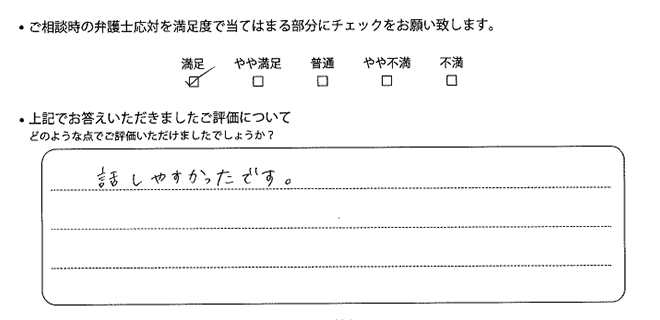 • ご相談時の弁護士応対を満足度で当てはまる部分にチェックをお願い致します。
満足 やや満足 普通 やや不満 不満
• 上記でお答えいただきましたご評価について
どのような点でご評価いただけましたでしょうか？
話しやすかったです。